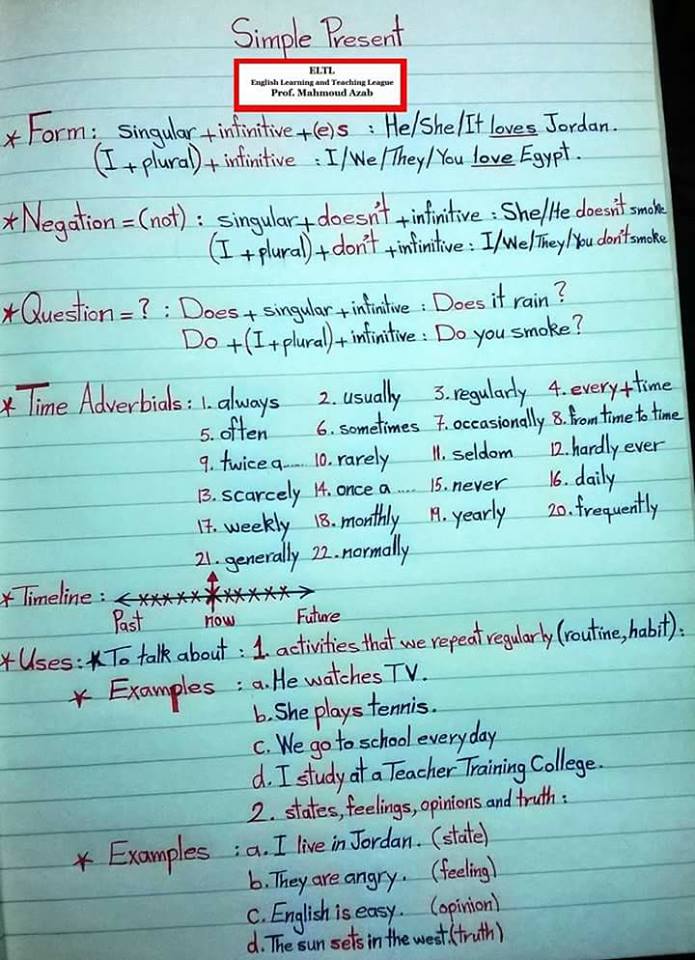 Simple Present
ELTL
English Learning and Teaching League
Prof. Mahmoud Azab
* Form: singular + infinitive + (e)s : He/She/It loves Jordan.
(I + plural) + infinitive : I/We/They/You love Egypt.
* Negation = (not) : singular + doesn't + infinitive : She/He doesn't smoke
(I + plural) + don't + infinitive : I/We/They/You don't smoke
* Question = ? : Does + singular + infinitive : Does it rain?
Do + (I + plural) + infinitive : Do you smoke?
* Time Adverbials : 1. always 2. usually 3. regularly 4. every + time
5. often 6. sometimes 7. occasionally 8. from time to time
9. twice a..... 10. rarely 11. seldom 12. hardly ever
13. scarcely 14. once a .... 15. never 16. daily
17. weekly 18. monthly 19. yearly 20. frequently
21. generally 22. normally
* Timeline :
Past now Future
* Uses : * To talk about : 1. activities that we repeat regularly (routine, habit) :
* Examples : a. He watches TV.
b. She plays tennis.
c. We go to school everyday
d. I study at a Teacher Training College.
2. states, feelings, opinions and truth :
* Examples : a. I live in Jordan. (state)
b. They are angry. (feeling)
c. English is easy. (opinion)
d. The sun sets in the west. (truth)